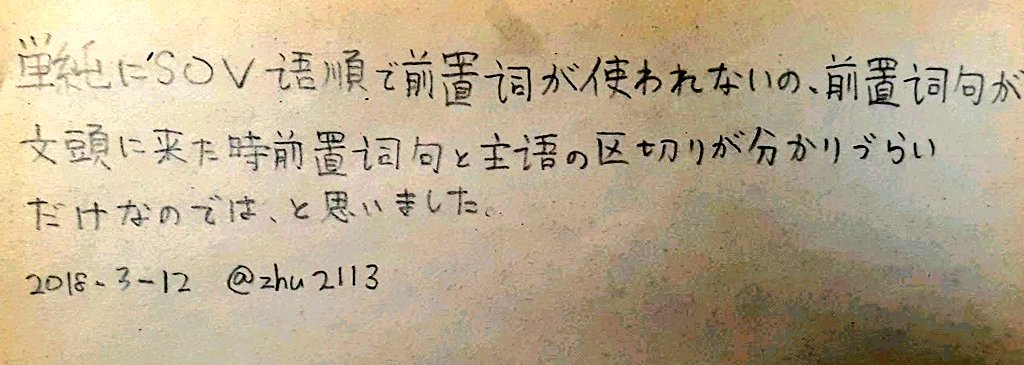 単純にSOV语順で前置词が使われないの、前置词句が
文頭に来た時前置词句と主语の区切りが分かりづらい
だけなのでは、と思いました。
2018-3-12 @zhu2113